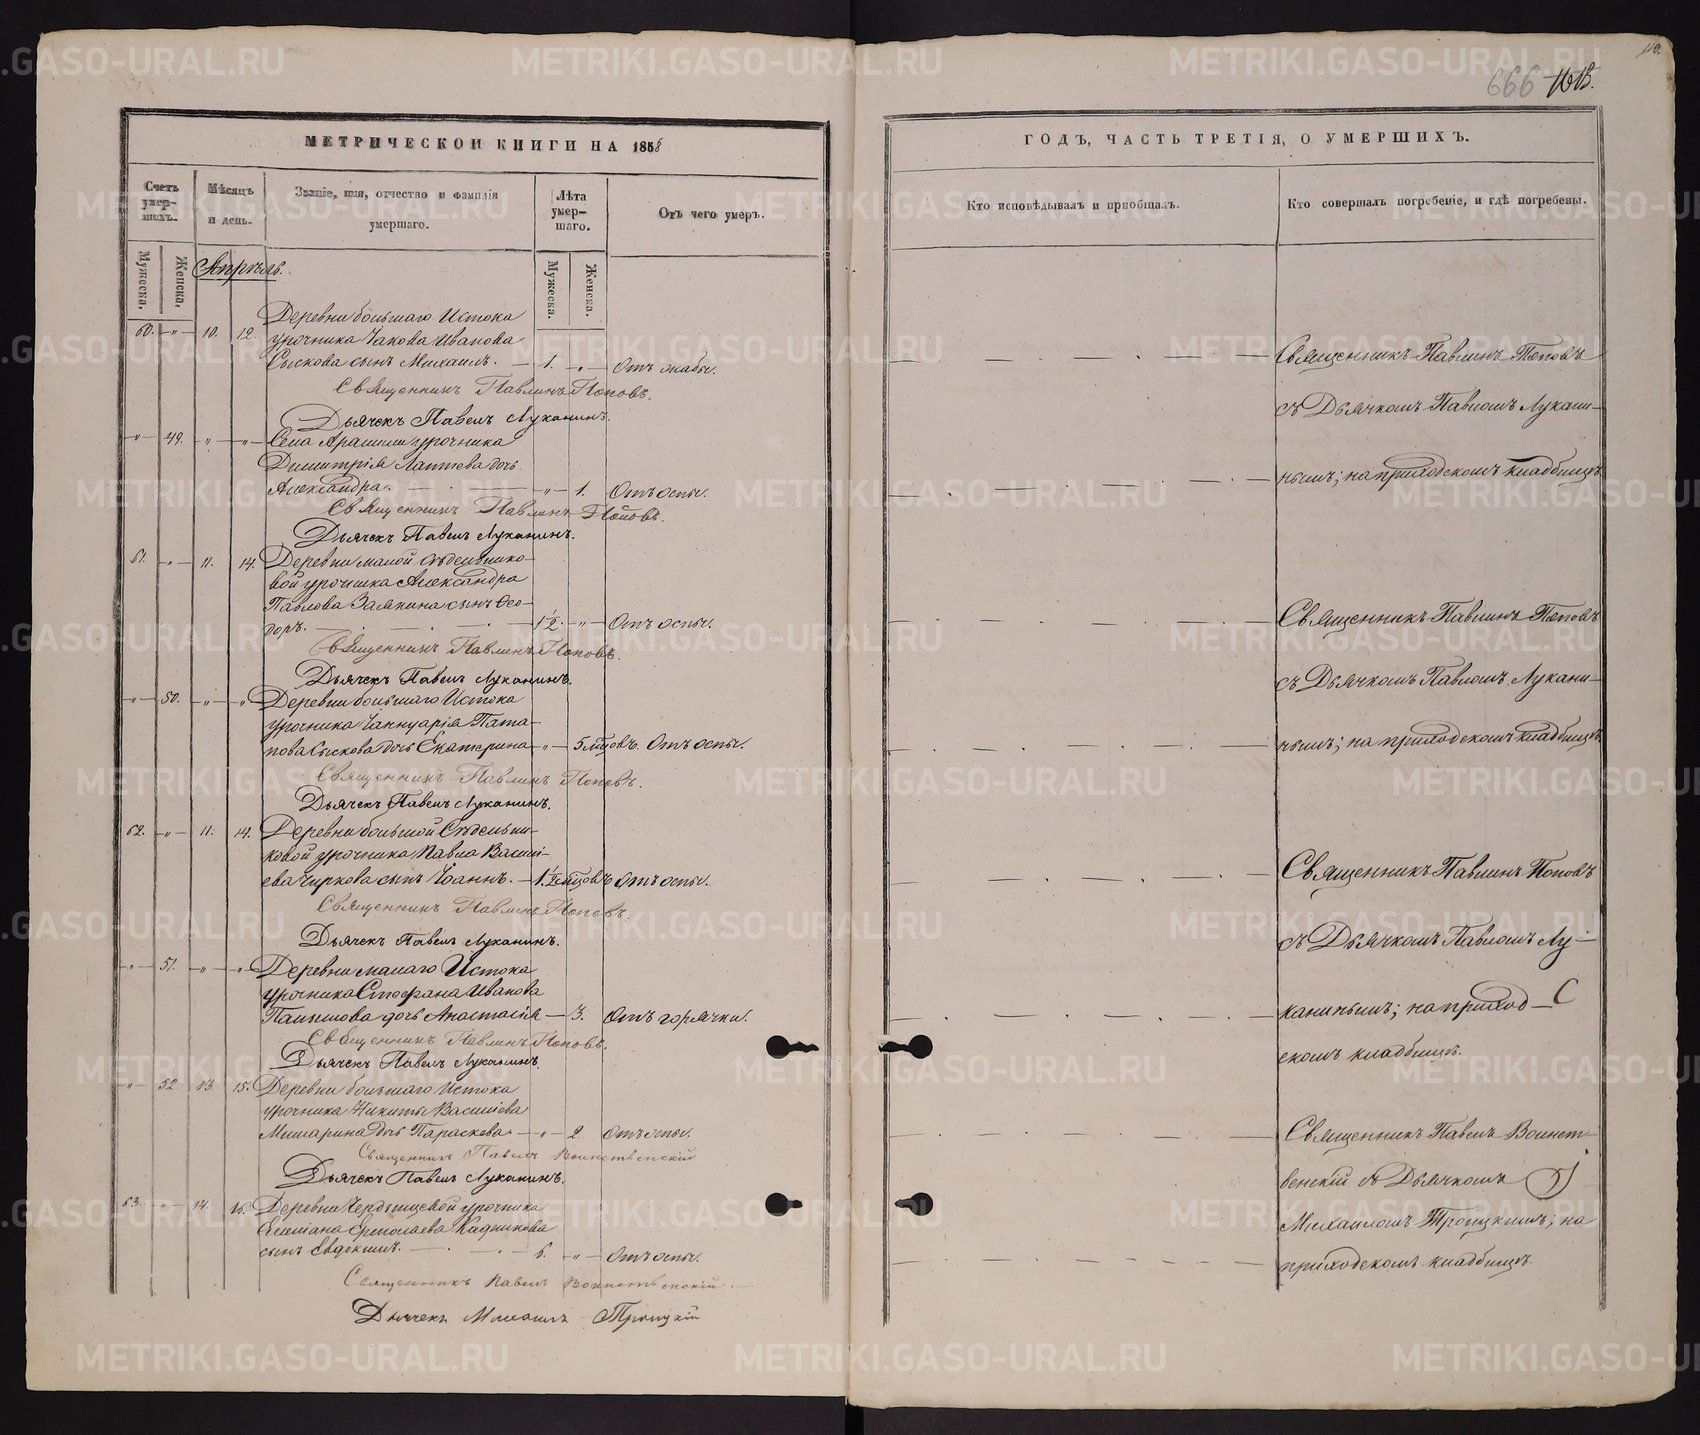 666
МЕТРИЧЕСКОЙ КНИГИ НА 1858
ГОДЪ, ЧАСТЬ ТРЕТІЯ, О УМЕРШИХЪ.
Счетъ умер-шихъ.
Мѣсяцъ и день.
Званіе, имя, отчество и фамилія умершаго.
Лѣта умер-шаго.
Отъ чего умеръ.
Кто исповѣдывалъ и пріобщалъ.
Кто совершалъ погребеніе, и гдѣ погребены.
Мужеска.
Женска.
Мужеска.
Женска.
Апрѣль.
Деревни большаго Истока
60. " 10. 12. урочника Іакова Иванова
Сыскова сынъ Михаилъ. 1. " Отъ жабы.
Священникъ Павлинъ Поповъ.
Дьячекъ Павелъ Луканинъ.
" 49. " " Села Арамили урочника
Димитрія Лаптева дочь
Александра. " 1. Отъ оспы.
Священникъ Павлинъ Поповъ.
Дьячекъ Павелъ Луканинъ.
61. " 11. 14. Деревни малой Сѣдельнико-
вой урочника Александра
Павлова Зайкина сынъ Ѳео-
доръ. 1/2. " Отъ оспы.
Священникъ Павлинъ Поповъ.
Дьячекъ Павелъ Луканинъ.
" 50. " " Деревни большаго Истока
урочника Іаннуарія Пата-
пова Сыскова дочь Екатерина " 5 мцовъ. Отъ оспы.
Священникъ Павлинъ Поповъ.
Дьячекъ Павелъ Луканинъ.
62. " 11. 14. Деревни большой Сѣдельни-
ковой урочника Павла Васильева
Чиркова сынъ Іоаннъ. Отъ оспы.
Священникъ Павлинъ Поповъ.
Дьячекъ Павелъ Луканинъ.
" 51. " " Деревни малаго Истока
урочника Стефана Иванова
дочь Анастасія 3. Отъ горячки.
Священникъ Павлинъ Поповъ.
Дьячекъ Павелъ Луканинъ.
" 52. 13. 15. Деревни большаго Истока
урочника Никиты Васильева
дочь Параскева. " 2. Отъ оспы.
Священникъ Павелъ Воинственскій
Дьячекъ Павелъ Луканинъ.
63. " 14. 16. Деревни урочника
Ермолаева Кадникова
сынъ Евдокимъ. 6. " Отъ оспы.
Священникъ Павелъ Воинственскій.
Дьячекъ Михаилъ Троицкій
Священникъ Павлинъ Поповъ
съ Дьячкомъ Павломъ Лукани-
нымъ; на приходскомъ кладбищѣ.
Священникъ Павлинъ Поповъ
съ Дьячкомъ Павломъ Лукани-
нымъ; на приходскомъ кладбищѣ.
Священникъ Павлинъ Поповъ
съ Дьячкомъ Павломъ Лу-
канинымъ; на приход-
скомъ кладбищѣ.
Священникъ Павелъ Воинст-
венскій съ Дьячкомъ
Михаиломъ Троицкимъ; на
приходскомъ кладбищѣ.
METRIKI.GASO-URAL.RU